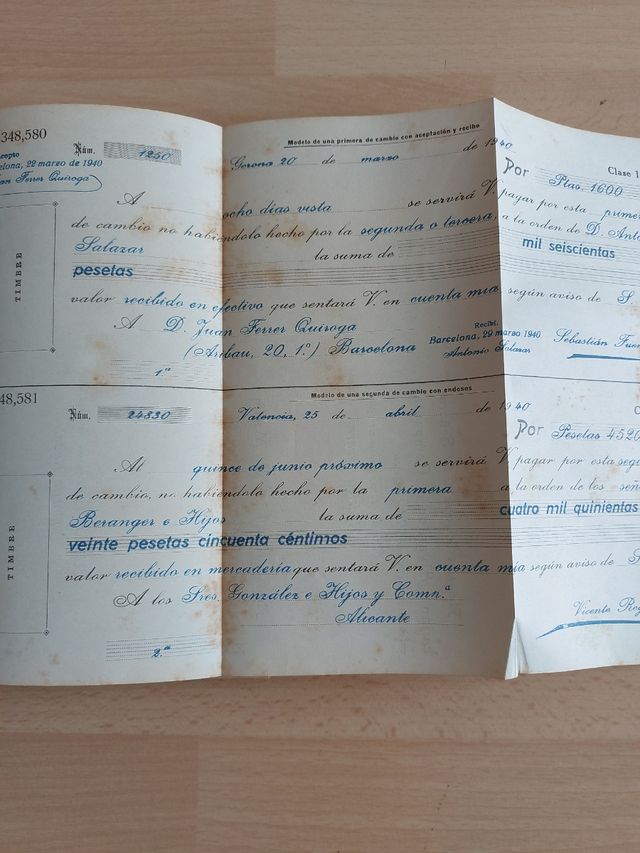 348,580
Núm. 1250
Modelo de una primera de cambio con aceptación y recibo
Clase 1
elona, 22 marzo de 1940
an Ferrer Quiroga
Gerona 20 de marzo de 1940
Por Ptas. 1600
A ocho días vista se servirá V. pagar por esta primera
de cambio no habiéndolo hecho por la segunda o tercera, a la orden de D. Anto
Salazar la suma de mil seiscientas
pesetas
valor recibido en efectivo que sentará V. en cuenta mía según aviso de S.
A D. Juan Ferrer Quiroga
Recibí.
Barcelona, 29 marzo 1940
Antonio Salazar
Sebastián Fuen
(Aribau, 20, 1.º) Barcelona
1.ª
TIMBRE
48,581
Núm. 24830
Modelo de una segunda de cambio con endosos
Valencia, 25 de abril de 1940
Por Pesetas 4520
Al quince de junio próximo se servirá V. pagar por esta segu
de cambio, no habiéndolo hecho por la primera a la orden de los seño
Beranger e Hijos la suma de cuatro mil quinientas
veinte pesetas cincuenta céntimos
valor recibido en mercadería que sentará V. en cuenta mía según aviso de S
A los Sres. González e Hijos y Comp.ª
Alicante
Vicente Reg
2.ª
TIMBRE